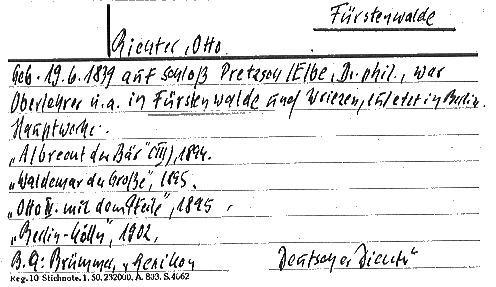 Fürstenwalde
Richter, Otto.
Geb. 19.6.1839 auf Schloß Pretzsch/Elbe, Dr. phil., war
Oberlehrer u.a. in Fürstenwalde und Wriezen, zuletzt in Berlin.
Hauptwerke:
„Albrecht der Bär" (III), 1894.
„Waldemar der Große", 1895.
„Otto IV. mit dem Pfeile", 1895.
„Berlin-Kölln", 1902.
B.Q: Brümmer, „Lexikon Deutscher Dichter"
Reg. 10 Stichnote. 1. 50. 232000. A. 803. S. 4062